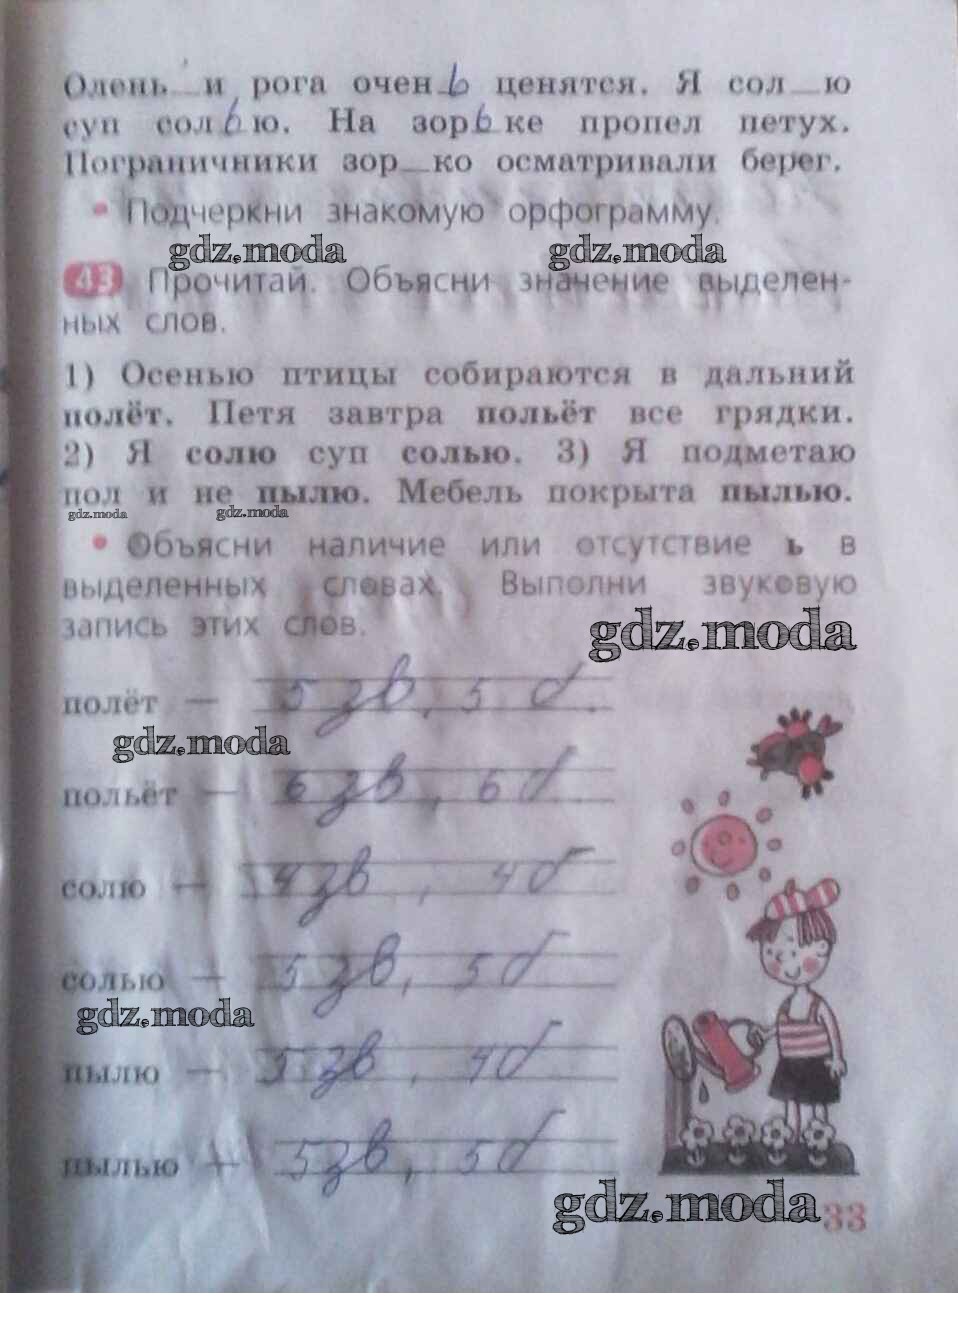 Олень_и рога очен_ь ценятся. Я сол_ю
суп сол_ь_ю. На зор_ь_ке пропел петух.
Пограничники зор_ко осматривали берег.
• Подчеркни знакомую орфограмму.
gdz.moda gdz.moda
43 Прочитай. Объясни значение выделен-
ных слов.
1) Осенью птицы собираются в дальний
полёт. Петя завтра польёт все грядки.
2) Я солю суп солью. 3) Я подметаю
пол и не пылю. Мебель покрыта пылью.
gdz.moda gdz.moda
• Объясни наличие или отсутствие ь в
выделенных словах. Выполни звуковую
запись этих слов.
gdz.moda
полёт — 5 зв, 5 б.
gdz.moda
польёт — 6 зв, 6 б
солю — 4 зв, 4 б
солью — 5 зв, 5 б
gdz.moda
пылю — 3 зв, 4 б
пылью — 5 зв, 5 б
gdz.moda 33